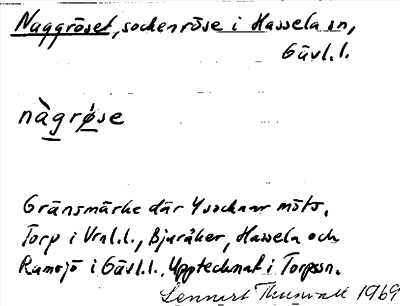 Naggröset, sockenröse i Hassela sn,
Gävl.l.
nàgrøse
Gränsmärke där 4 socknar möts.
Torp i Vnl.l., Bjuråker, Hassela och
Ramsjö i Gävl.l. Upptecknat i Torpssn.
Lennart 1969